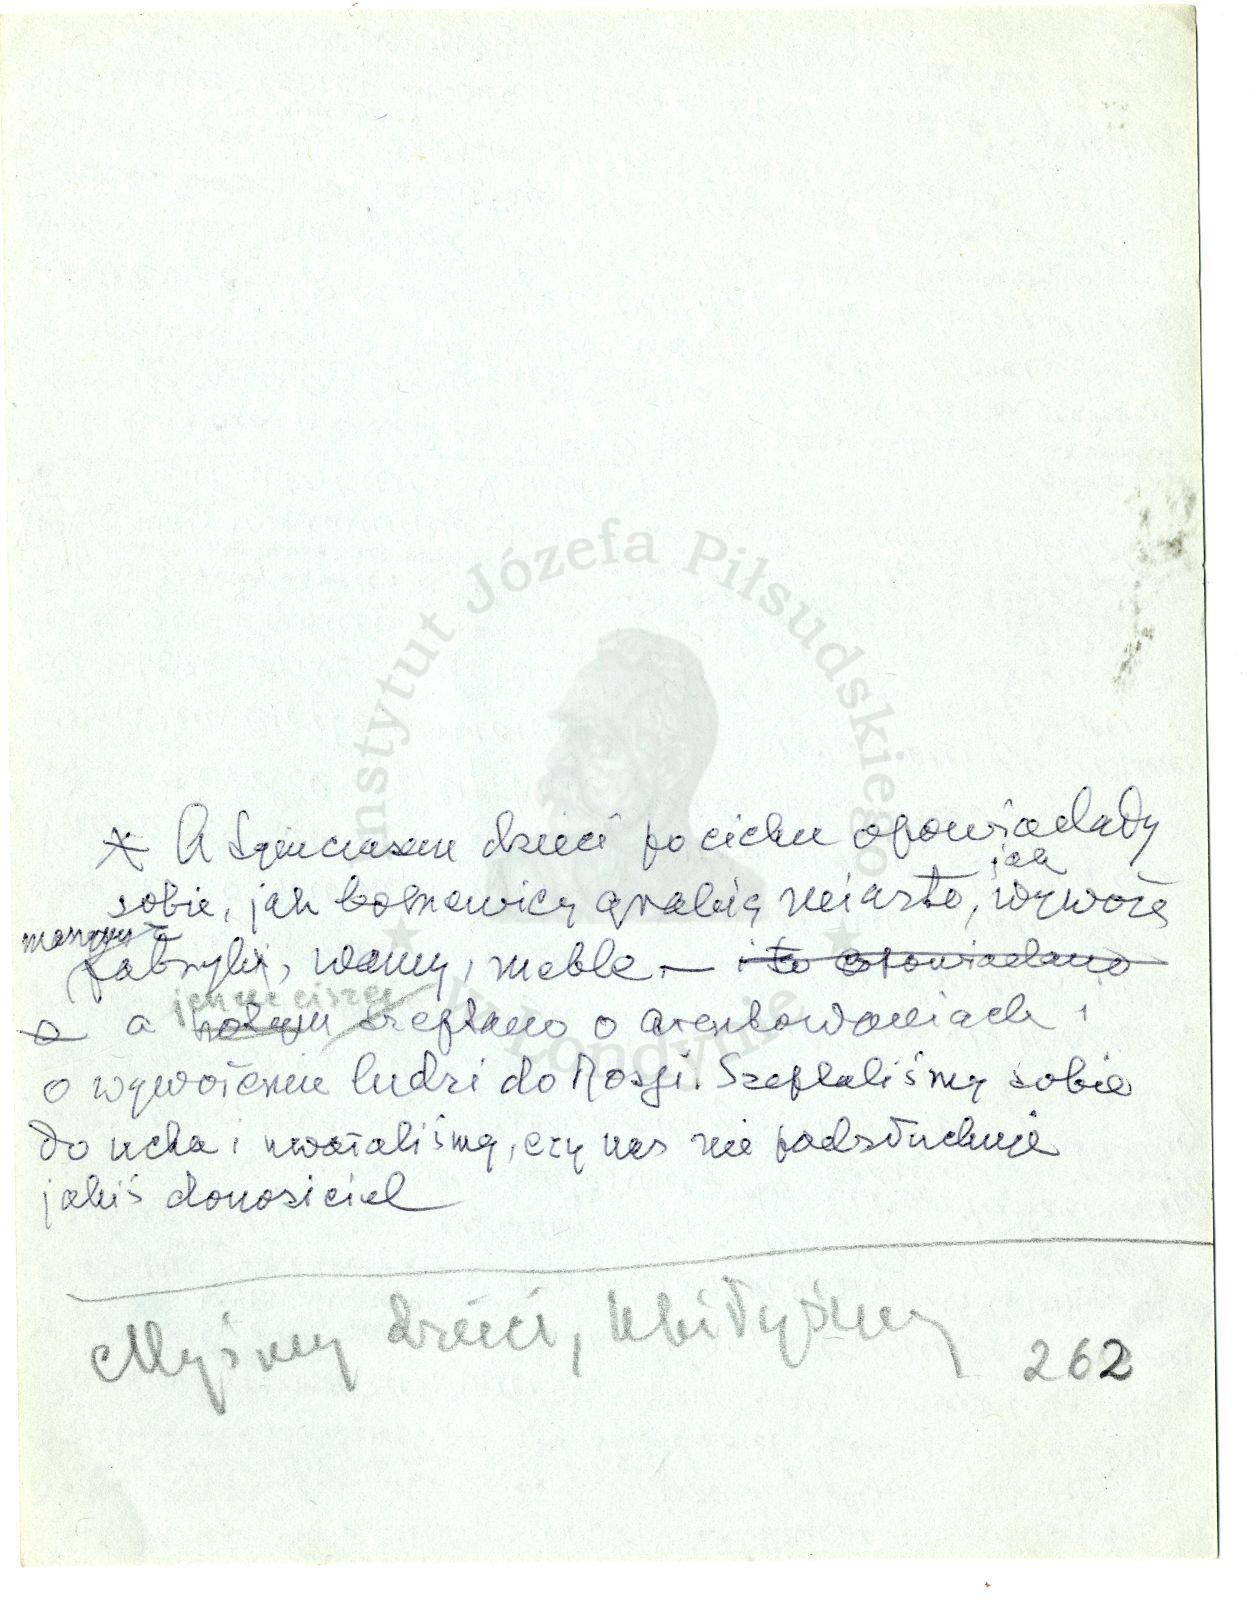 Instytut Józefa Piłsudskiego
w Londynie
* A tymczasem dzieci po cichu opowiadały
jak
sobie, jak bolszewicy grabią miasto, wywożą
maszyny z
fabryki, wanny, meble — i to opowiadano
jeszcze ciszej
a potem szeptano o aresztowaniach i
o wywożeniu ludzi do Rosji. Szeptaliśmy sobie
do ucha i uważaliśmy, czy nas nie podsłuchuje
jakiś donosiciel
Myśmy dzieci,
262